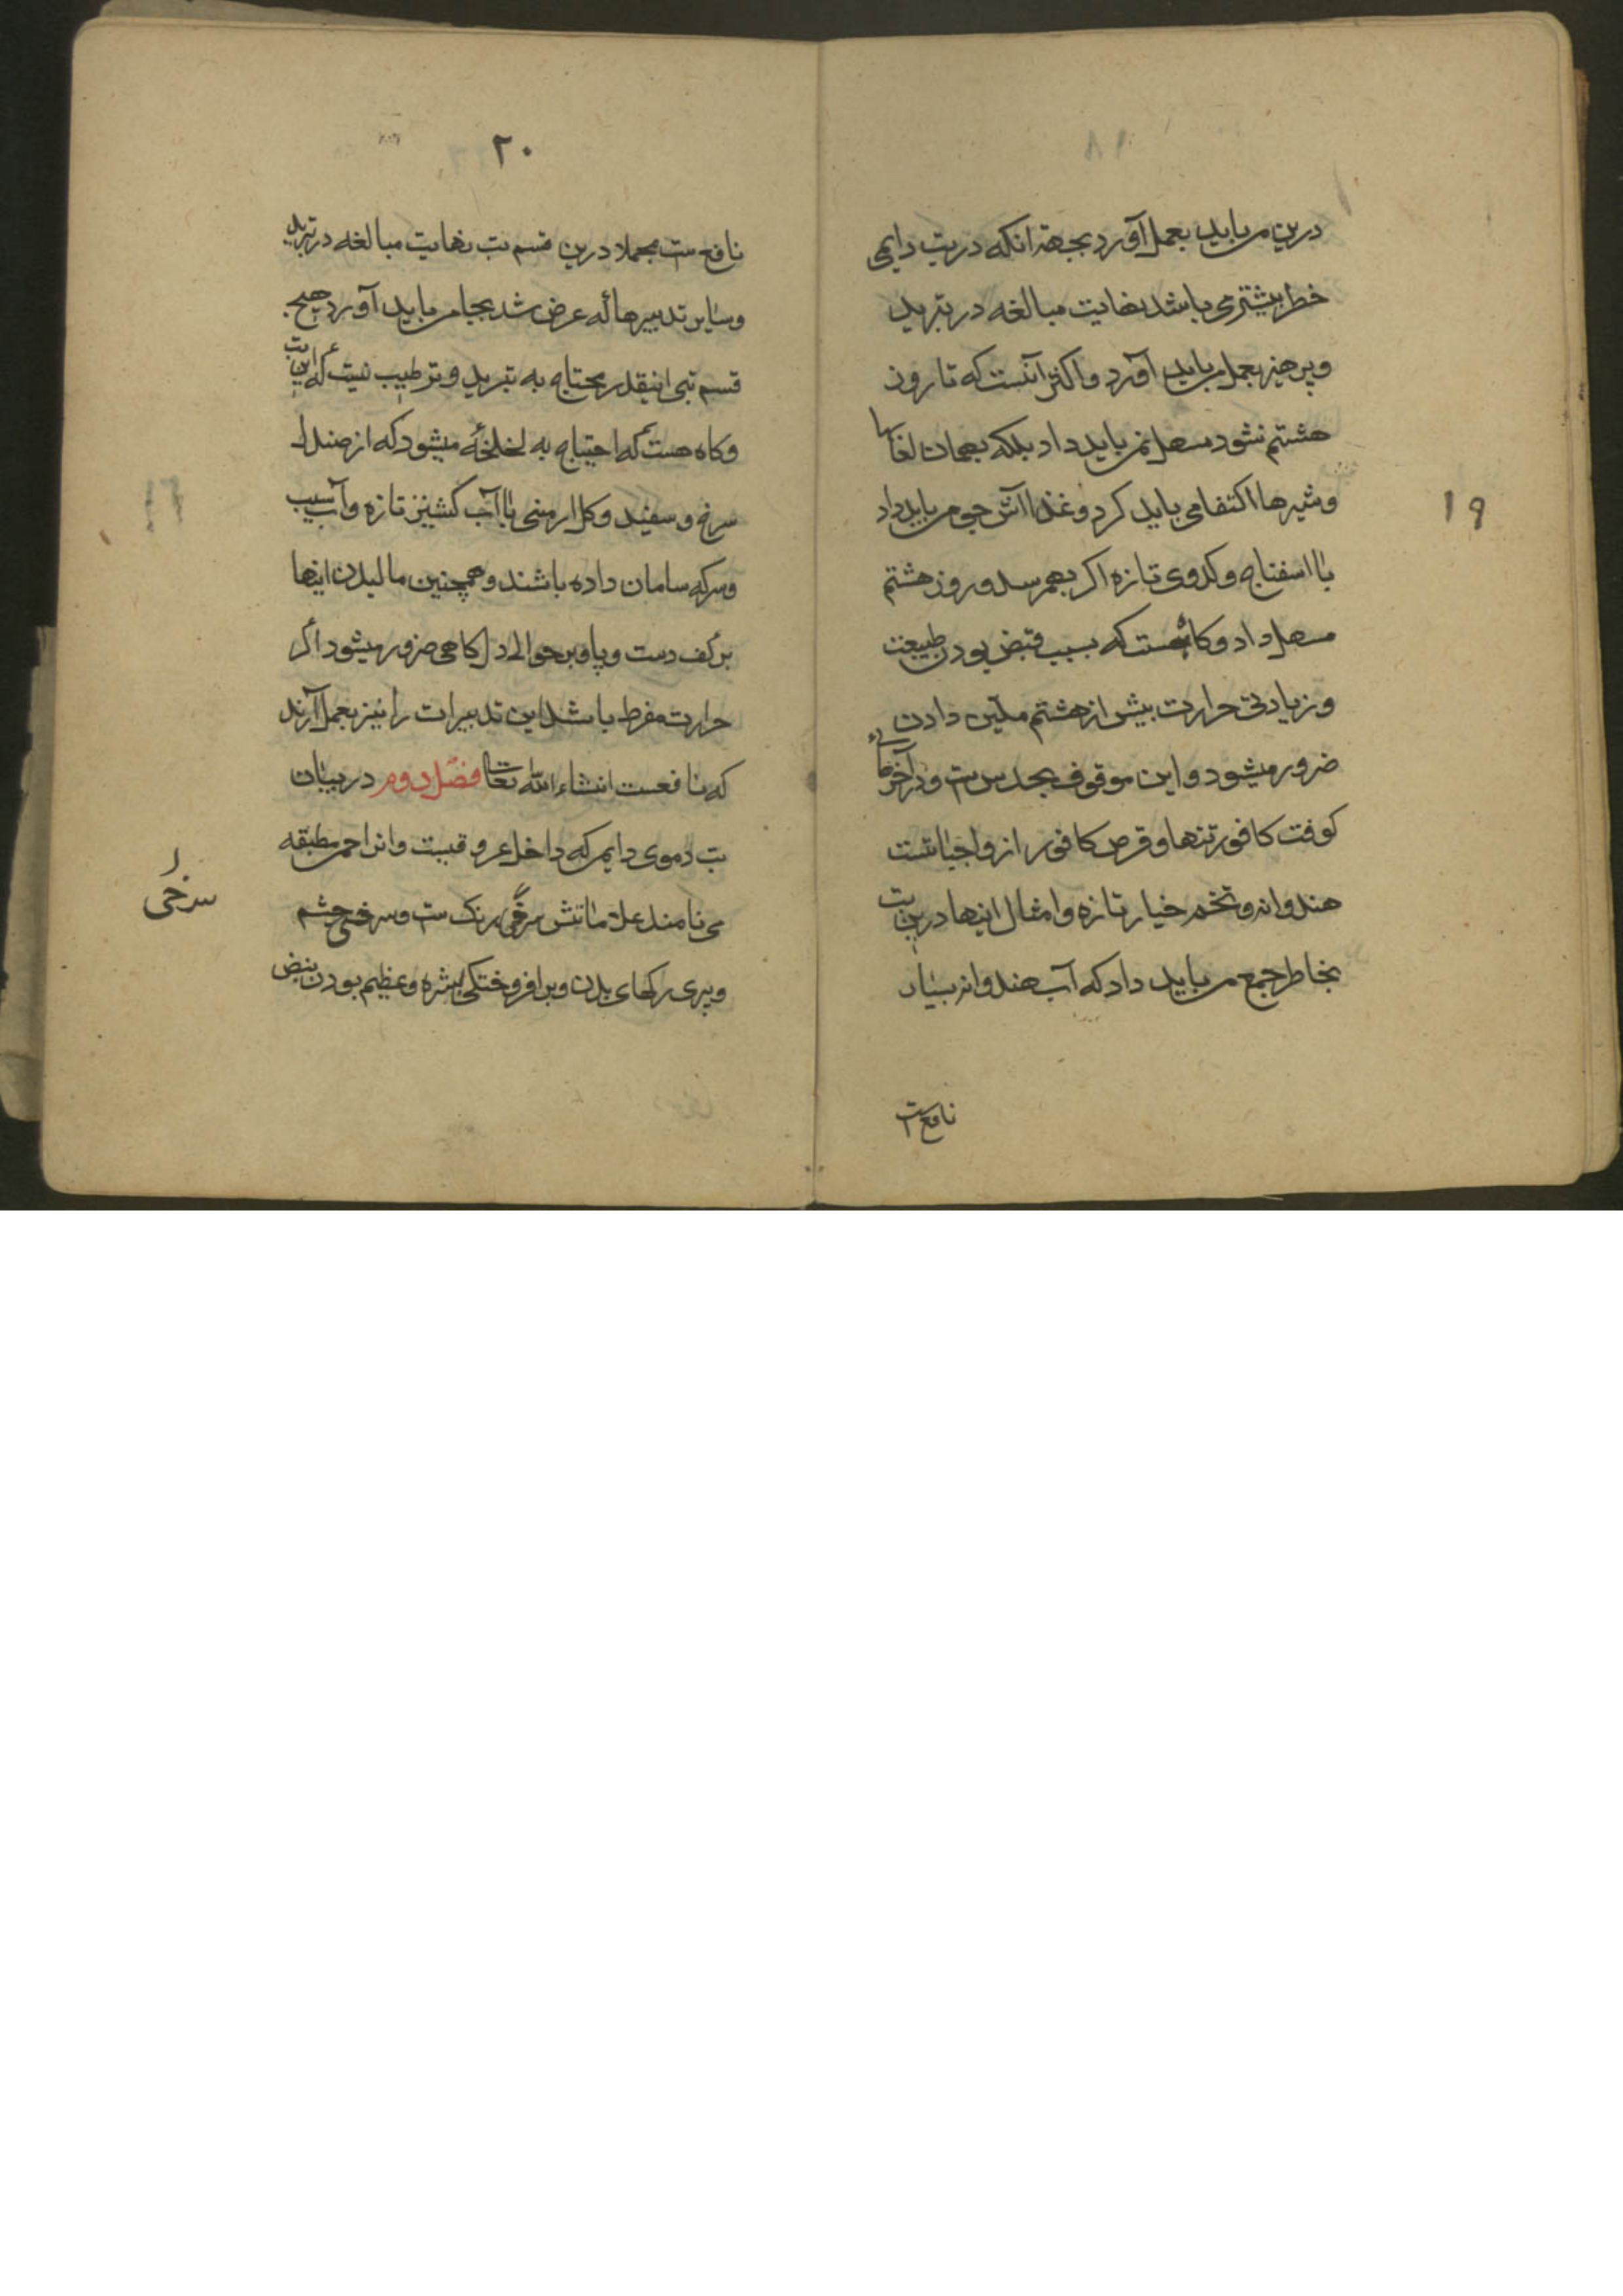 ۱۹
درین می باید بعمل آورد بجهة انکه در تب دایمی
خطر بیشتر می باشد نهایت مبالغه در تبرید
و پرهیز بعمل می باید آورد و اکثر آنست که تا روز
هشتم نشود مسهل نمی باید داد بلکه بهمان لعابها
و شیرها اکتفا می باید کرد و غذا آش جو می باید داد
با اسفناج و کدوی تازه اکر بهمرسد و روز هشتم
مسهل داد و کاه هست که بسبب قبض بودن طبیعت
و زیادتی حرارت بیش از هشتم ملین دادن
ضرور میشود و این موقوف بحدس ست و در آخر
کوفت کافور تنها و قرص کافور از واجباتست
هندوانه و تخم خیار تازه و امثال اینها درین تب
بخاطر جمع می باید داد که آب هندوانه بسیار
نافع ست
۲۰
نافع ست مجملا درین قسم تب نهایت مبالغه در تبرید
و سایر تدبیرها که عرض شد بجا می باید آورد هیچ
قسم تبی اینقدر محتاج به تبرید و ترطیب نیست که این تب
و کاه هست که احتیاج به لخلخه میشود که از صندل
سرخ و سفید و کل ارمنی با آب کشنیز تازه و آب سیب
و سرکه سامان داده باشند و همچنین مالیدن اینها
بر کف دست و پا و بر حوالی دل کاهی ضرور میشود اکر
حرارت مفرط باشد این تدبیرات را نیز بعمل آرند
که نافعست انشاء الله تعالی فصل دوم در بیان
تب دموی دایم که داخل عروقست و انرا حمی مطبقه
می نامند علاماتش سرخی رنک ست و سرخی چشم
و پری رکهای بدن و برافروختکی بشره و عظیم بودن نبض
سرخی